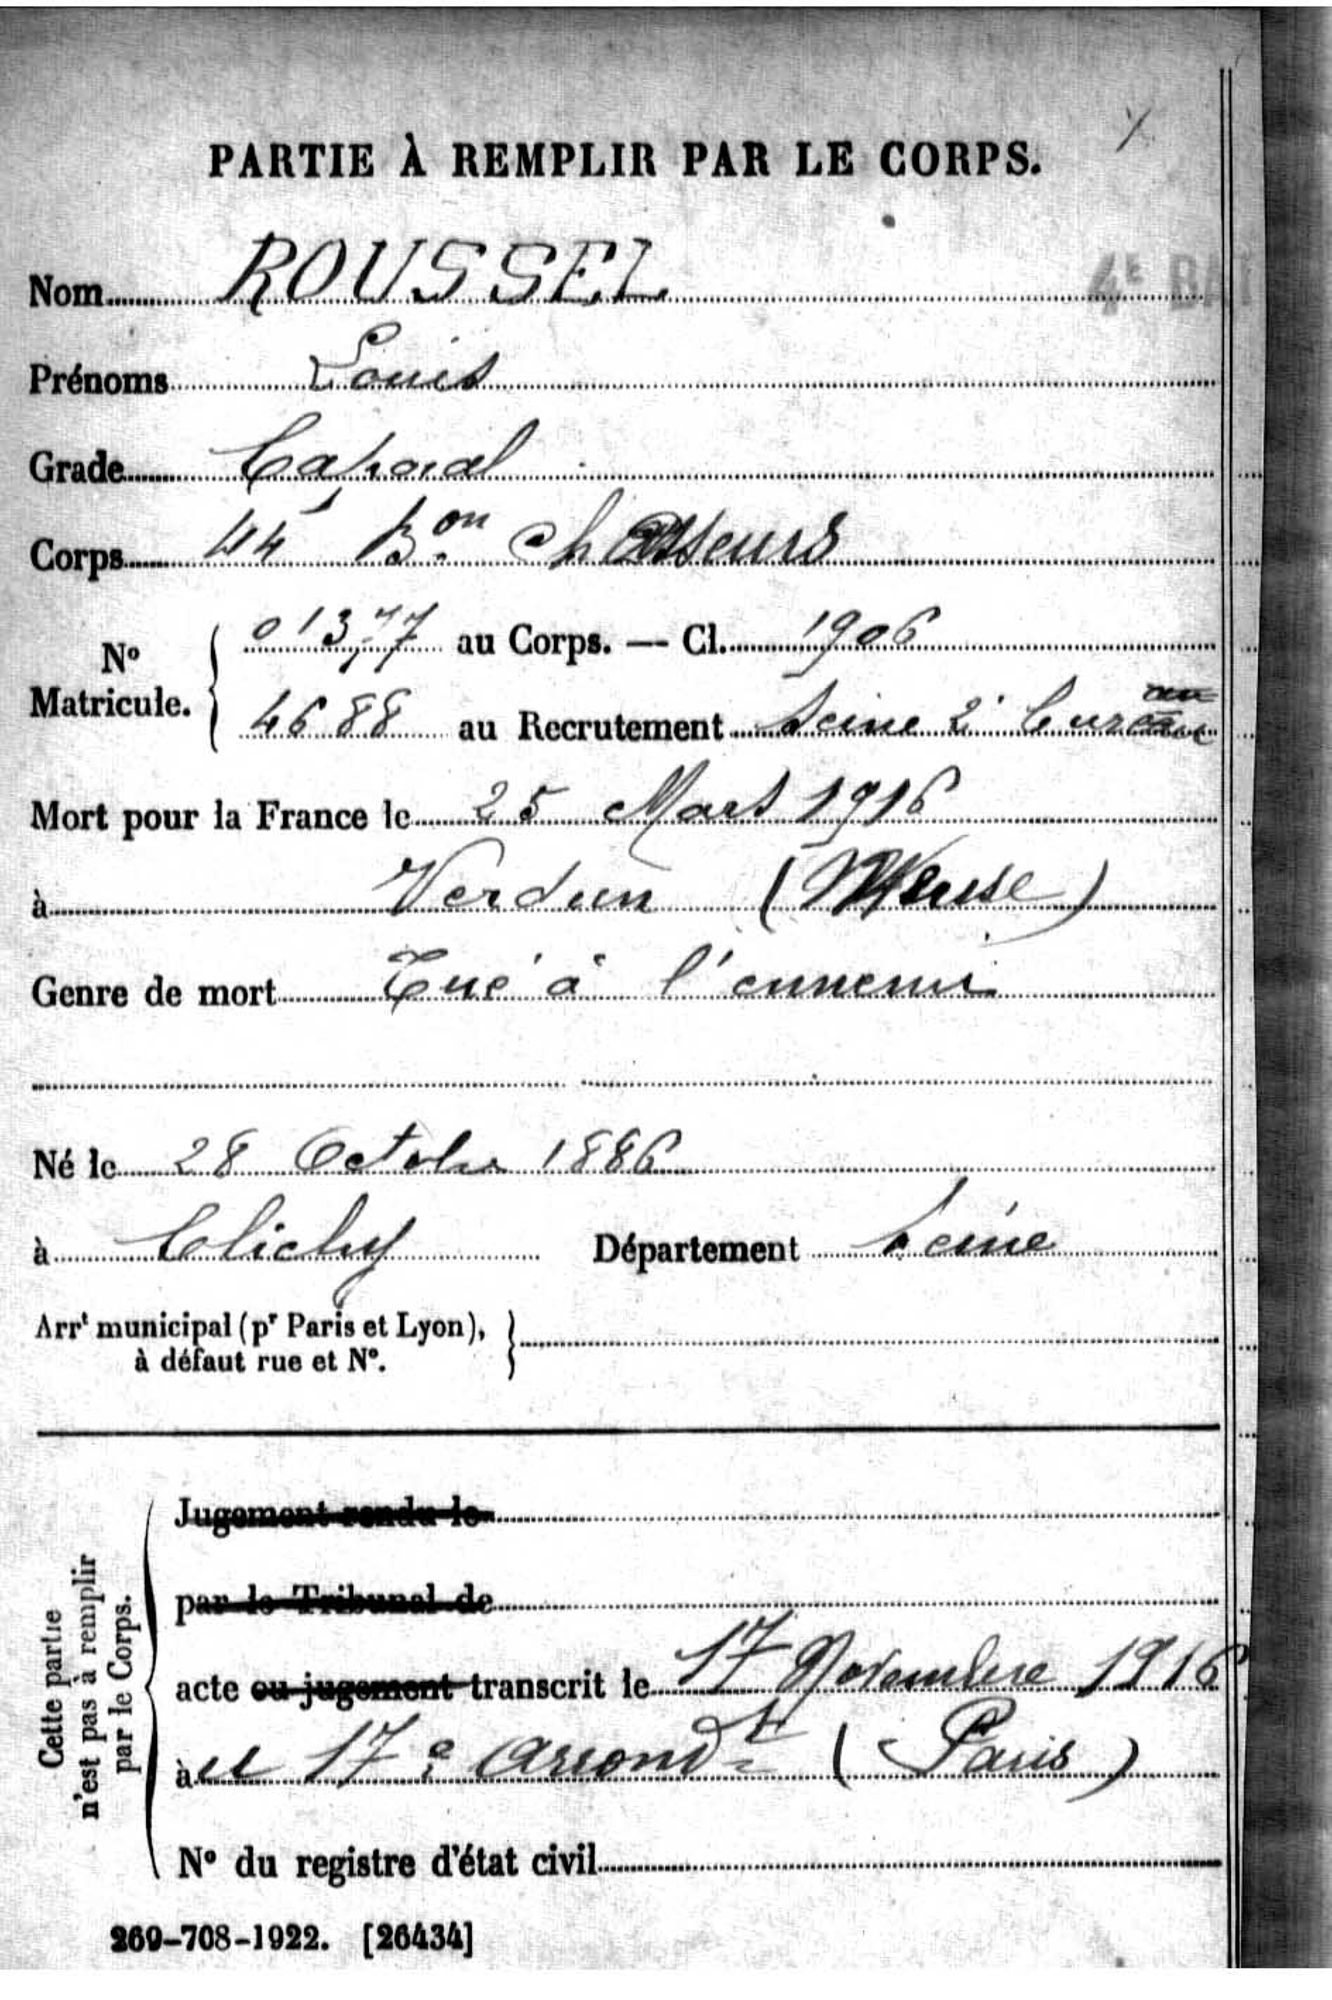 PARTIE À REMPLIR PAR LE CORPS.
4E BAT
Nom ROUSSEL
Prénoms Louis
Grade Caporal
Corps 44e Bon Chasseurs
No Matricule. { 01377 au Corps. — Cl. 1906
4688 au Recrutement Seine 2e bureau
Mort pour la France le 25 Mars 1916
à Verdun (Meuse)
Genre de mort Tué à l'ennemi
Né le 28 Octobre 1886
à Clichy Département Seine
Arrt municipal (pr Paris et Lyon),
à défaut rue et No.
Cette partie
n'est pas à remplir
par le Corps.
Jugement rendu le
par le Tribunal de
acte ou jugement transcrit le 17 Novembre 1916
à 17e arrondt (Paris)
No du registre d'état civil
269-708-1922. [26434]